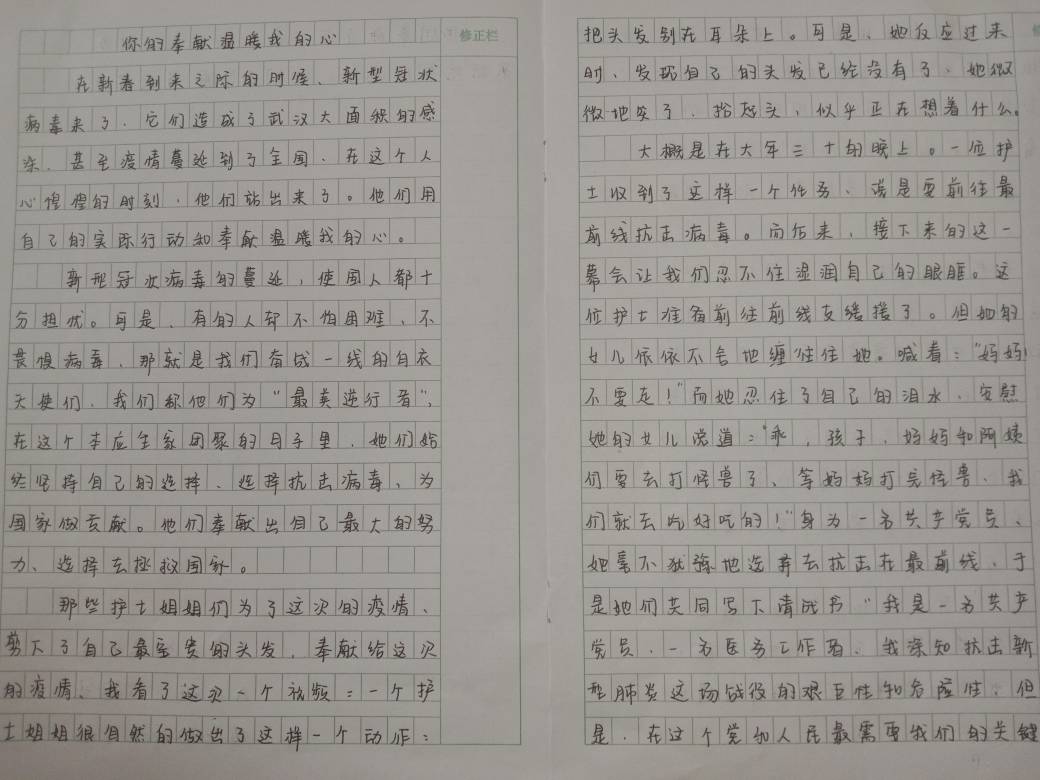 你的奉献温暖我的心
修正栏
在新春到来之际的时候、新型冠状
病毒来了，它们造成了武汉大面积的感
染，甚至疫情蔓延到了全国，在这个人
心惶惶的时刻，他们站出来了。他们用
自己的实际行动和奉献温暖我的心。
新型冠状病毒的蔓延，使国人都十
分担忧。可是，有的人却不怕困难、不
畏惧病毒，那就是我们奋战一线的白衣
天使们，我们称他们为“最美逆行者”，
在这个本应全家团聚的日子里，她们始
终坚持自己的选择、选择抗击病毒、为
国家做贡献。他们奉献出自己最大的努
力、选择去拯救国家。
那些护士姐姐们为了这次的疫情、
剪下了自己最宝贵的头发，奉献给这次
的疫情、我看了这次一个视频：一个护
士姐姐很自然的做出了这样一个动作：
把头发别在耳朵上。可是，她反应过来
时、发现自己的头发已经没有了、她微
微地笑了，抬起头，似乎正在想着什么。
大概是在大年三十的晚上。一位护
士收到了这样一个任务、说是要前往最
前线抗击病毒。而后来，接下来的这一
幕会让我们忍不住湿润自己的眼眶。这
位护士准备前往前线支援了。但她的
女儿依依不舍地缠住她。喊着：“妈妈！
不要走！”而她忍住了自己的泪水，安慰
她的女儿说道：“乖，孩子，妈妈和阿姨
们要去打怪兽了、等妈妈打完怪兽、我
们就去吃好吃的！”身为一名共产党员、
她毫不犹豫地选择去抗击在最前线，于
是她们共同写下请战书“我是一名共产
党员，一名医务工作者、我深知抗击新
型肺炎这场战役的艰巨性和危险性，但
是，在这个党和人民最需要我们的关键